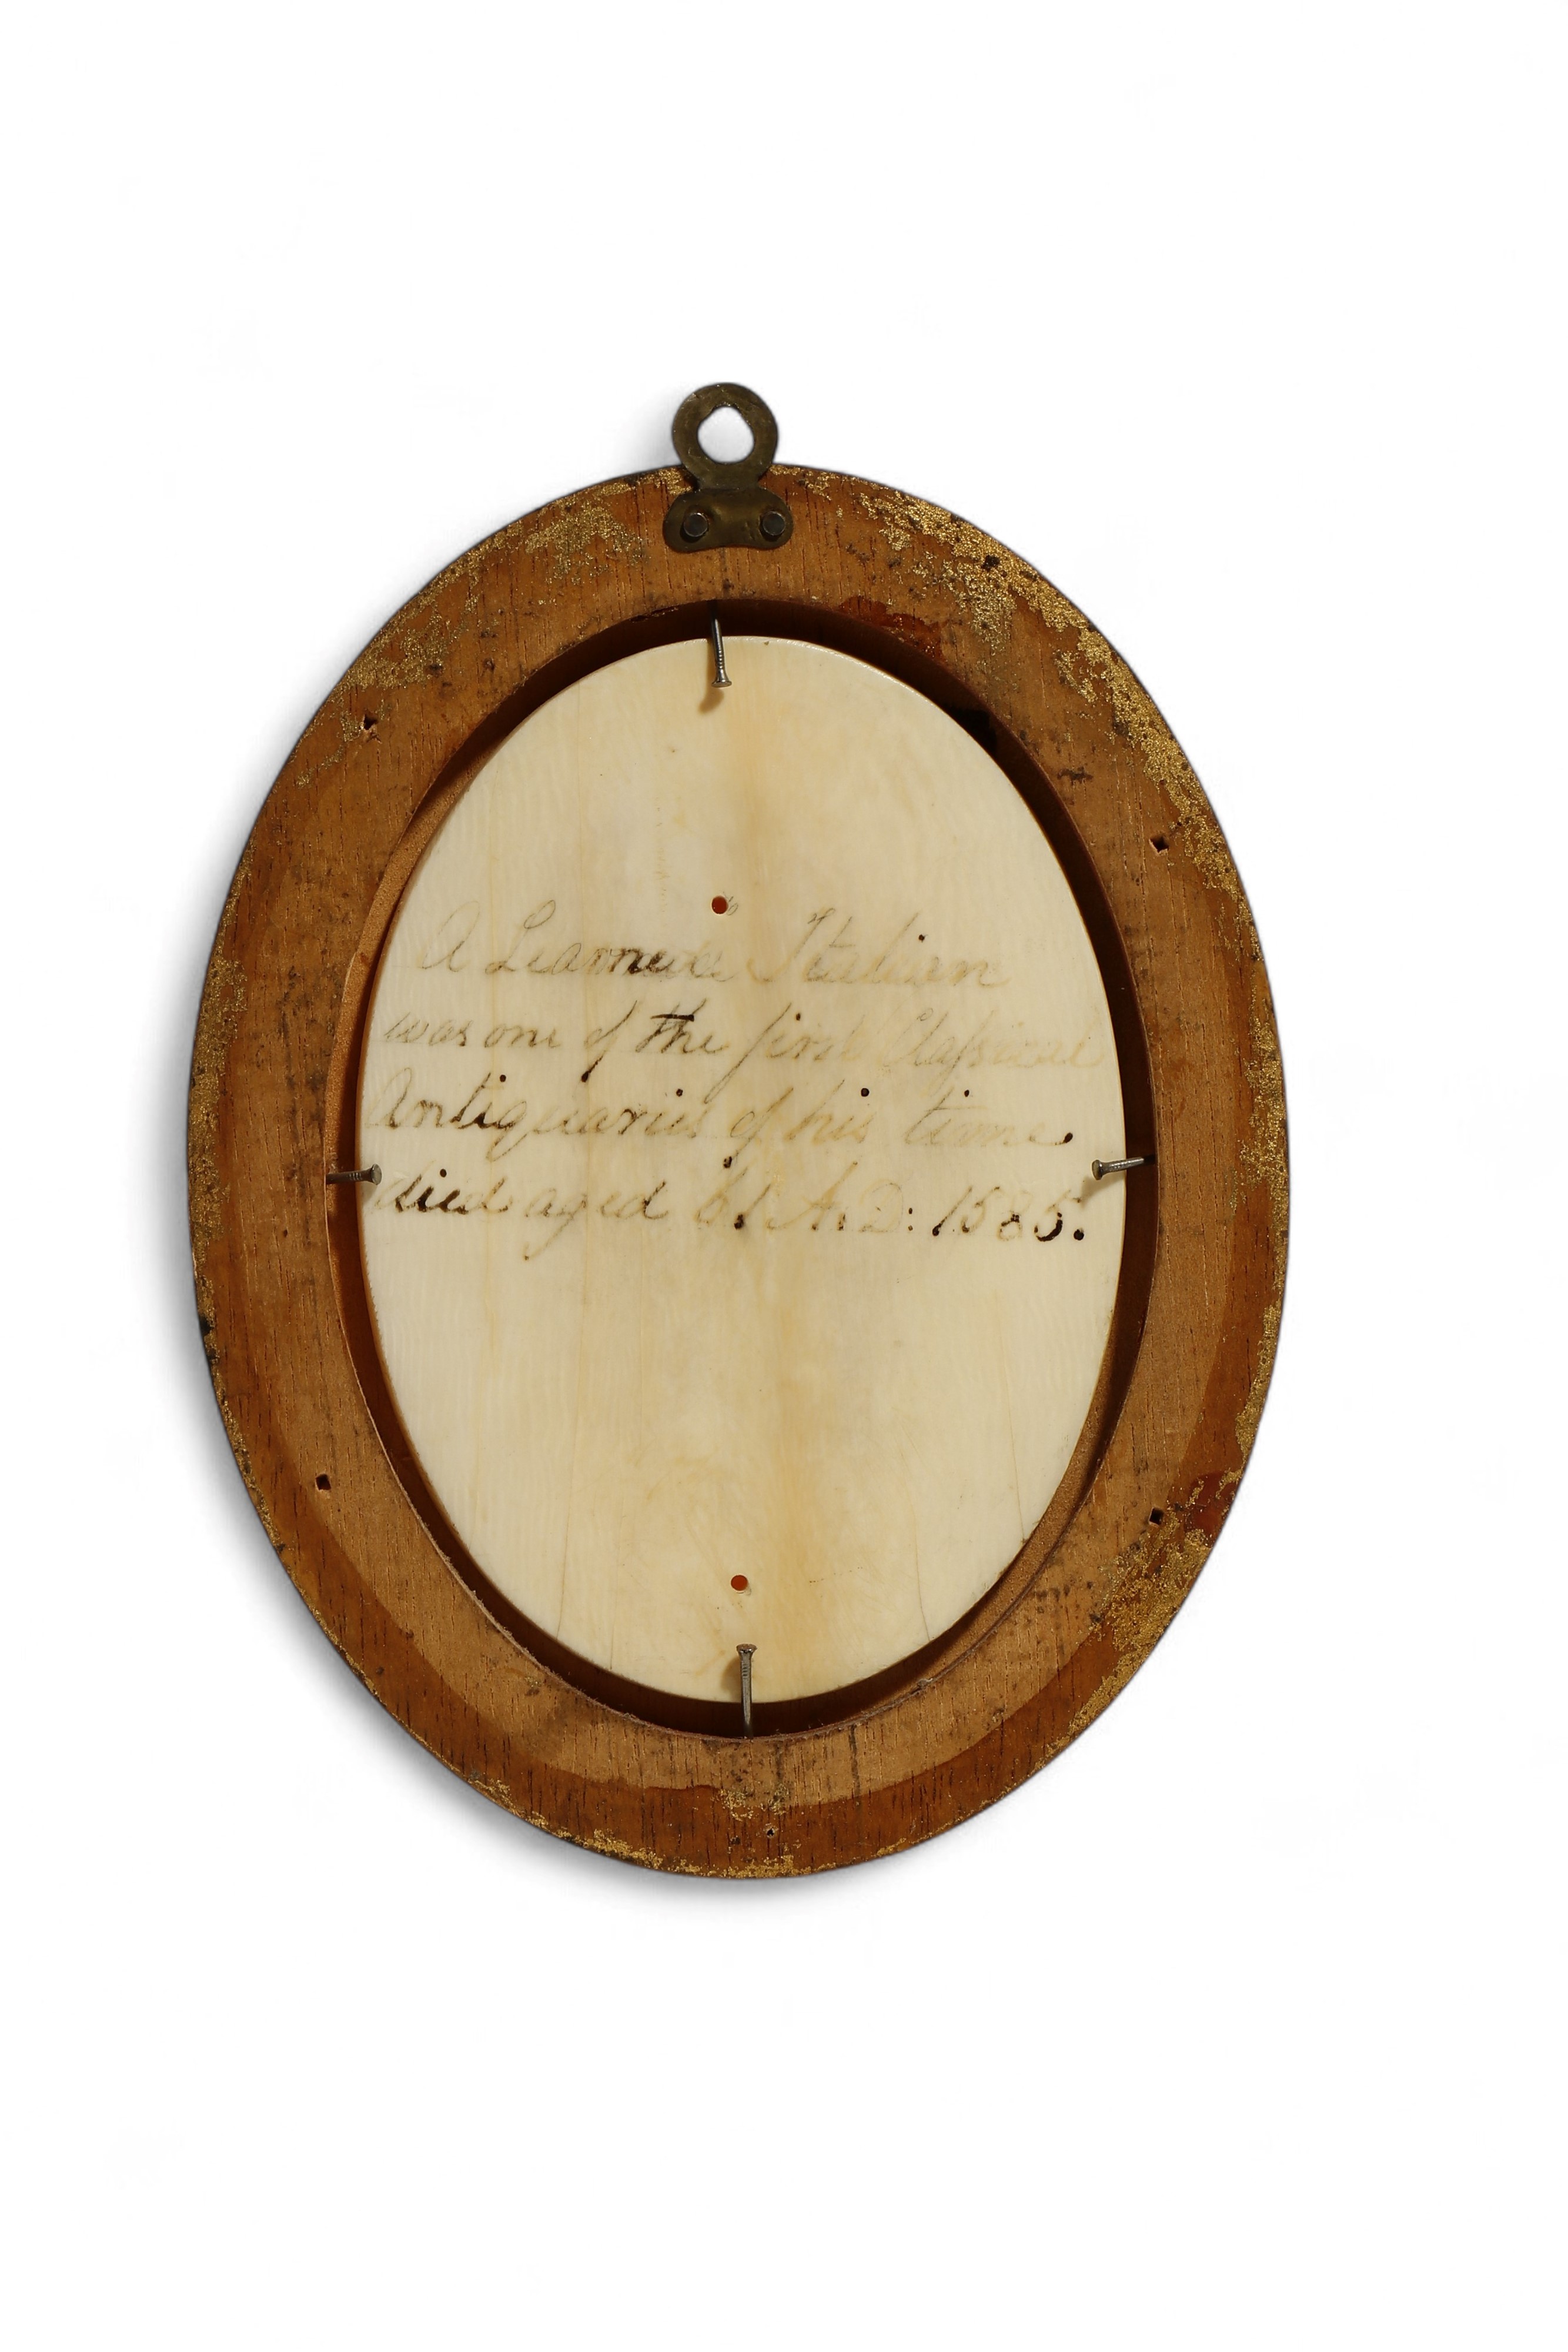 A Learned Italian
was one of the first Classical
Antiquaries of his time.
died aged 61 A. D: 1585.